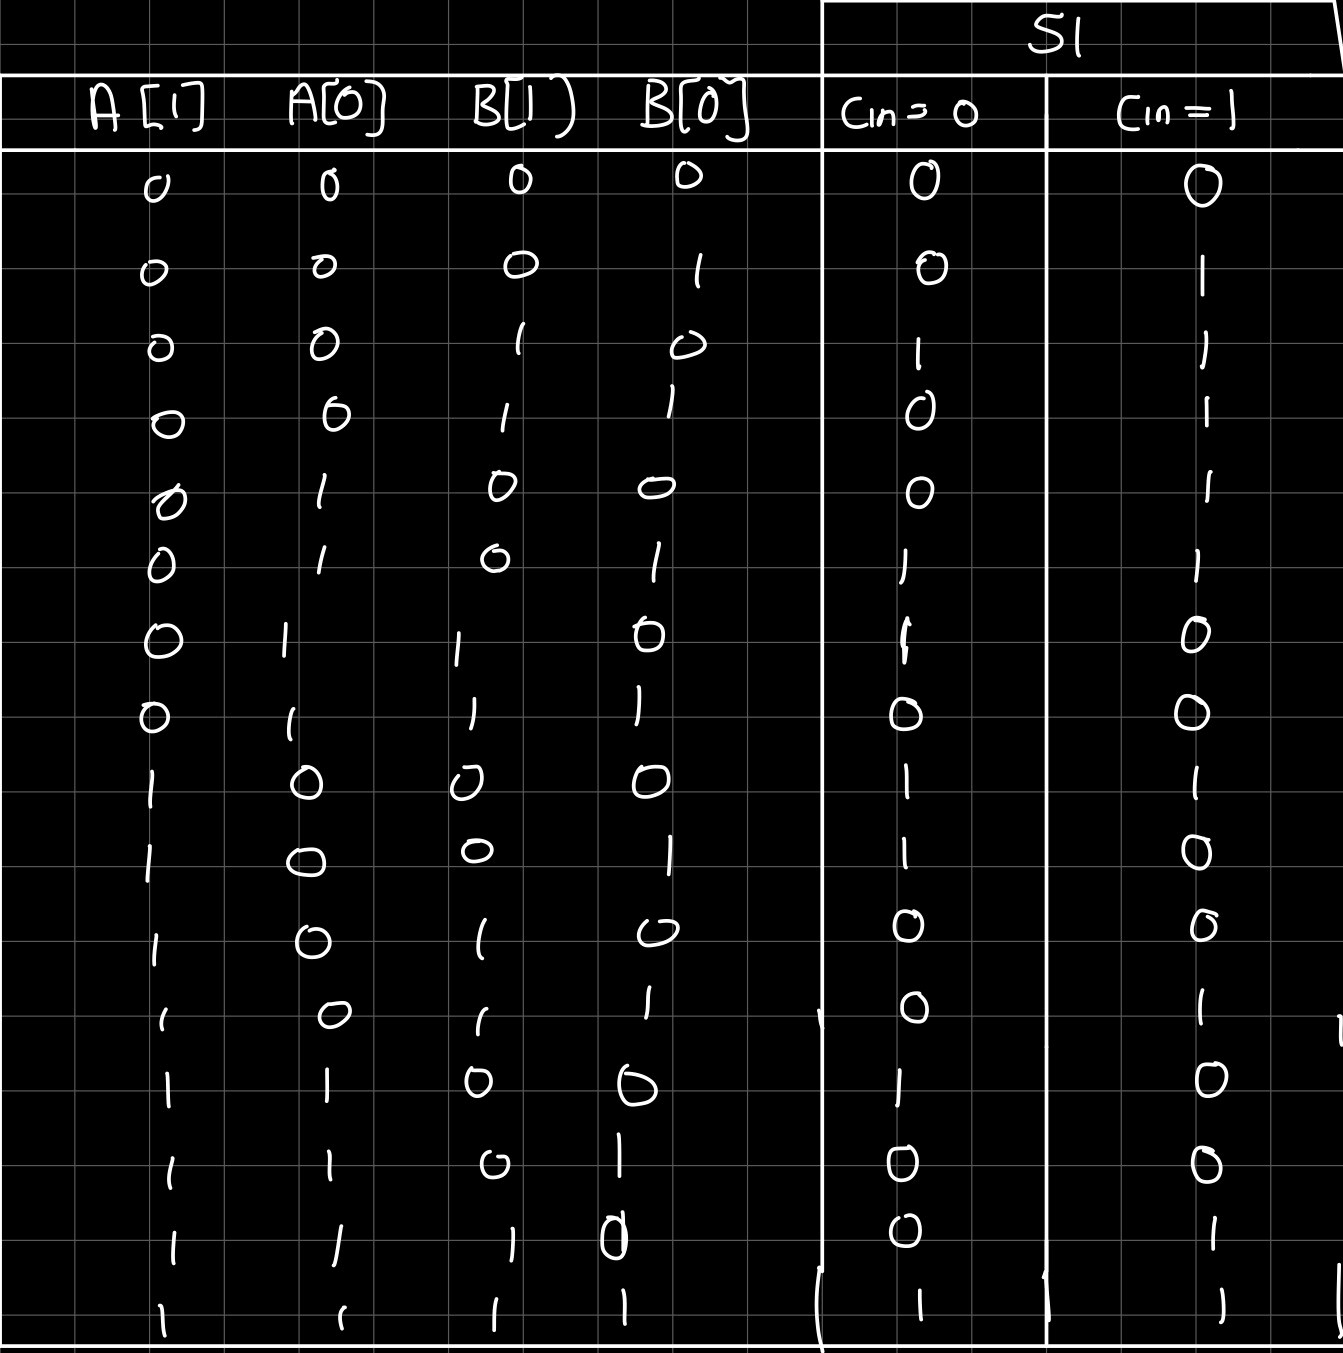 S1
A[1] A[0] B[1) B[0] Cin = 0 Cin = 1
0 0 0 0 0 0
0 0 0 1 0 1
0 0 1 0 1 1
0 0 1 1 0 1
0 1 0 0 0 1
0 1 0 1 1 1
0 1 1 0 1 0
0 1 1 1 0 0
1 0 0 0 1 1
1 0 0 1 1 0
1 0 1 0 0 0
1 0 1 1 0 1
1 1 0 0 1 0
1 1 0 1 0 0
1 1 1 0 0 1
1 1 1 1 1 1